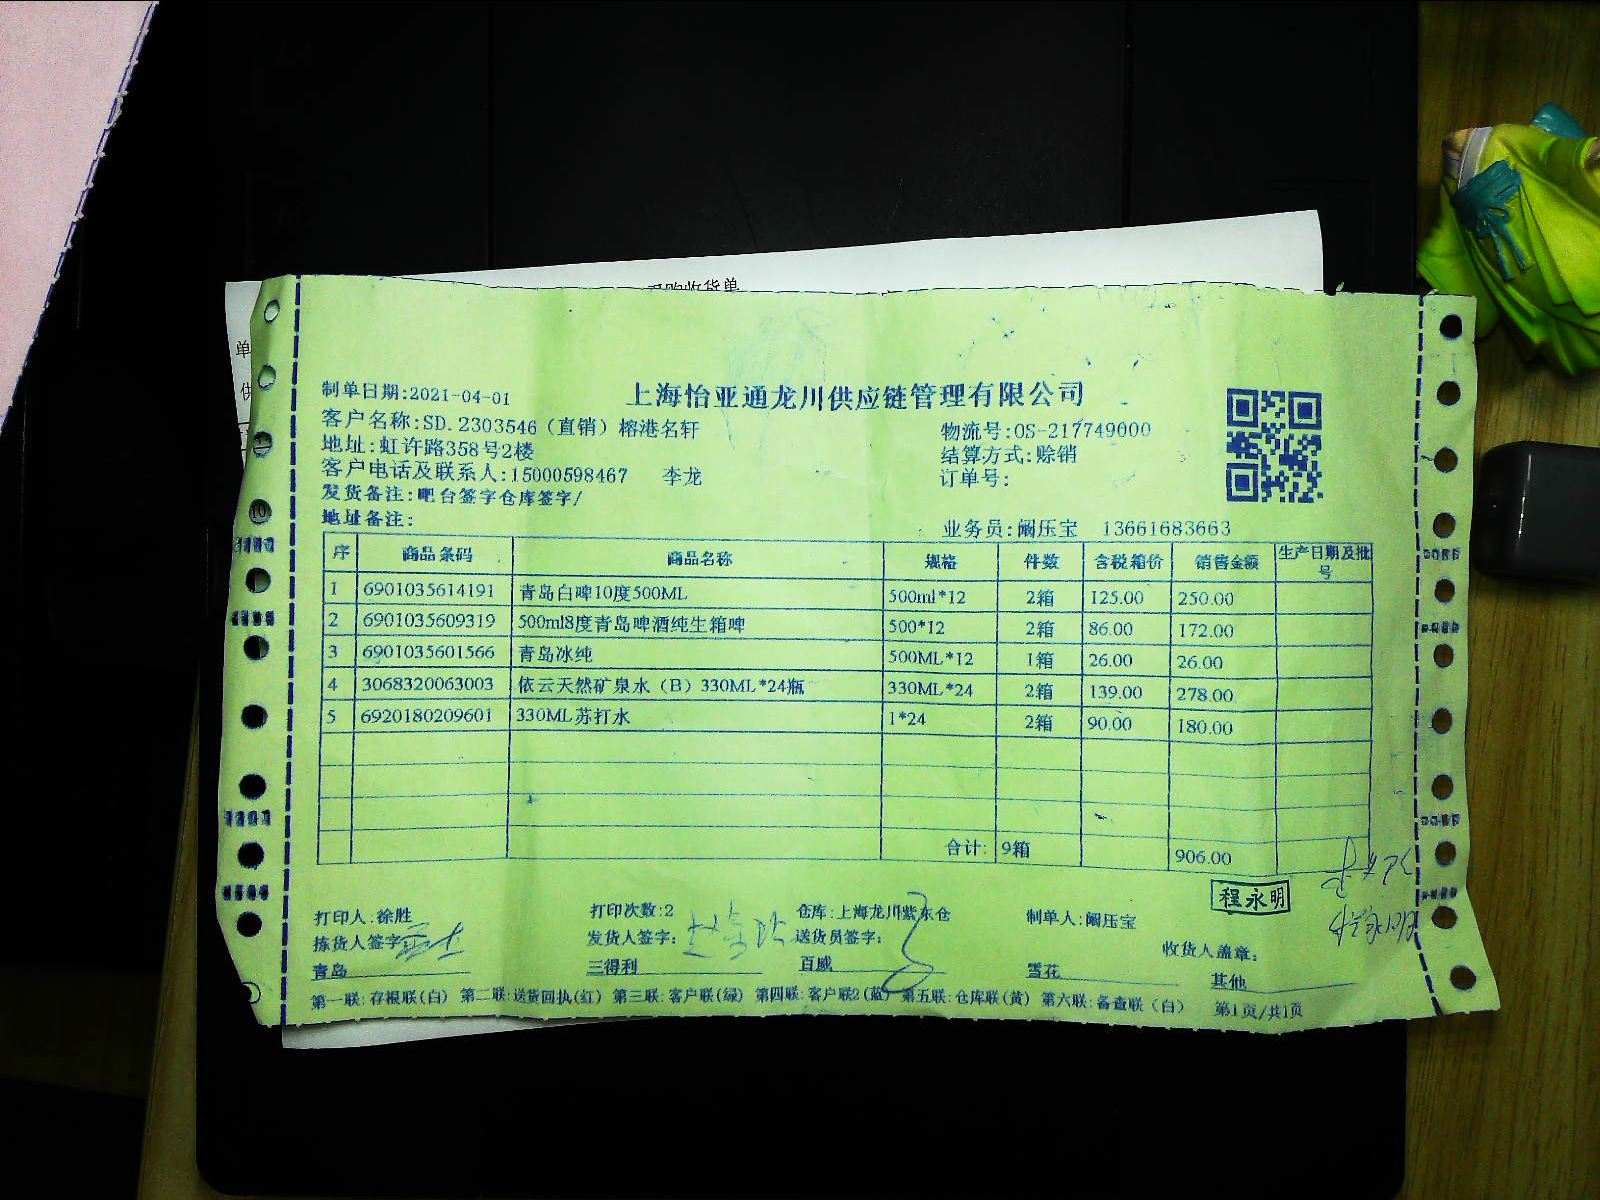 购收货单
单
供
制单日期:2021-04-01
上海怡亚通龙川供应链管理有限公司
客户名称:SD.2303546（直销）榕港名轩
物流号:OS-217749000
地址:虹许路358号2楼
结算方式:赊销
客户电话及联系人:15000598467 李龙
订单号:
发货备注:吧台签字仓库签字/
地址备注:
业务员:阚压宝 13661683663
序 商品条码 商品名称 规格 件数 含税箱价 销售金额 生产日期及批号
1 6901035614191 青岛白啤10度500ML 500ml*12 2箱 125.00 250.00
2 6901035609319 500ml8度青岛啤酒纯生箱啤 500*12 2箱 86.00 172.00
3 6901035601566 青岛冰纯 500ML*12 1箱 26.00 26.00
4 3068320063003 依云天然矿泉水（B）330ML*24瓶 330ML*24 2箱 139.00 278.00
5 6920180209601 330ML苏打水 1*24 2箱 90.00 180.00
合计: 9箱 906.00
程永明
打印人:徐胜 打印次数:2 仓库:上海龙川紫东仓 制单人:阚压宝
拣货人签字 发货人签字: 送货员签字: 收货人盖章:
青岛 三得利 百威 雪花 其他
第一联:存根联(白) 第二联:送货回执(红) 第三联:客户联(绿) 第四联:客户联2(蓝) 第五联:仓库联(黄) 第六联:备查联（白） 第1页/共1页